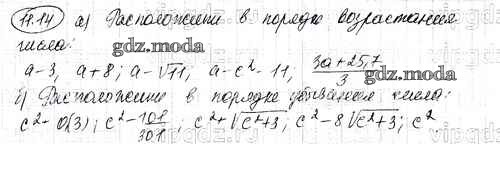 11.14 а) Расположение в порядке возрастания
числа:
gdz.moda
a-3, a+8; a-√11, a-c²-11, (3a+25,7)/3
б) Расположение в порядке убывания числа:
c²+0(3); c²-101/301; c²+√(c²+3); c²-8√(c²+3); c²
gdz.moda